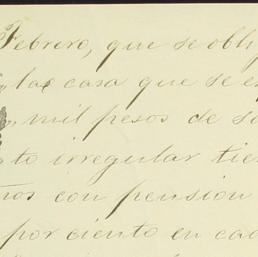 Febrero, que se obli
las casa que se es
mil pesos de so
to irregular tien
nos con pension
por ciento en cad